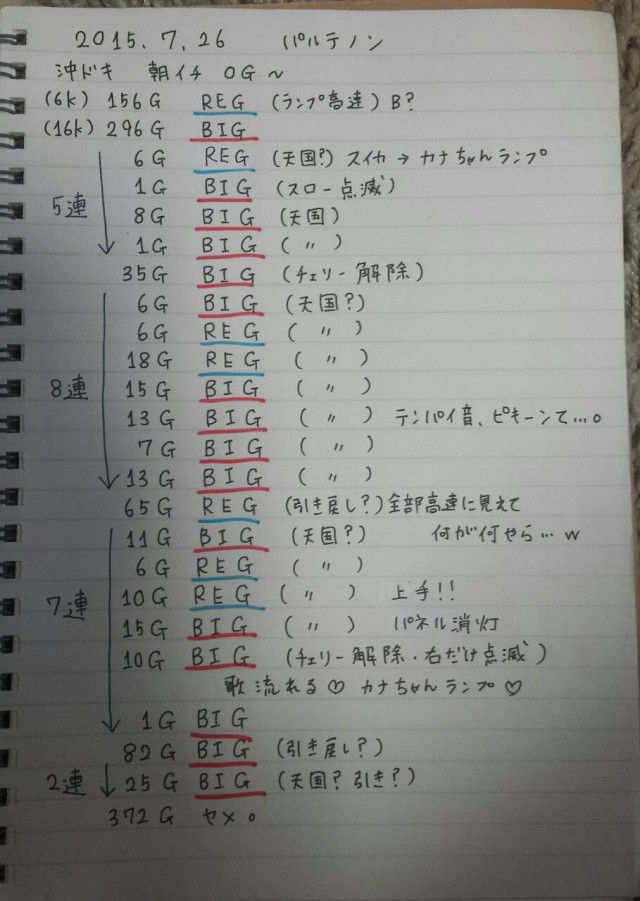 2015.7.26 パルテノン
沖ドキ 朝イチ 0G～
(6k) 156G REG (ランプ高速) B?
(16k) 296G BIG
6G REG (天国?) スイカ→カナちゃんランプ
1G BIG (スロー点滅)
5連 8G BIG (天国)
1G BIG ( 〃 )
35G BIG (チェリー解除)
6G BIG (天国?)
6G REG ( 〃 )
18G REG ( 〃 )
8連 15G BIG ( 〃 )
13G BIG ( 〃 ) テンパイ音、ピキーンて…。
7G BIG ( 〃 )
13G BIG ( 〃 )
65G REG (引き戻し?) 全部高速に見えて
11G BIG (天国?) 何が何やら…w
6G REG ( 〃 )
7連 10G REG ( 〃 ) 上手!!
15G BIG ( 〃 ) パネル消灯
10G BIG (チェリー解除・右だけ点滅)
歌流れる♡ カナちゃんランプ♡
1G BIG
82G BIG (引き戻し?)
2連 25G BIG (天国? 引き?)
372G ヤメ。